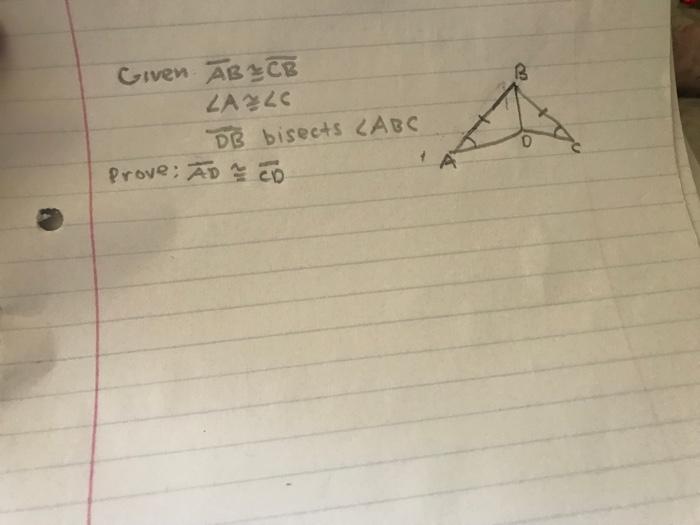 Given AB ≅ CB
∠A ≅ ∠C
DB bisects ∠ABC
Prove: AD ≅ CD
B
D
A
C